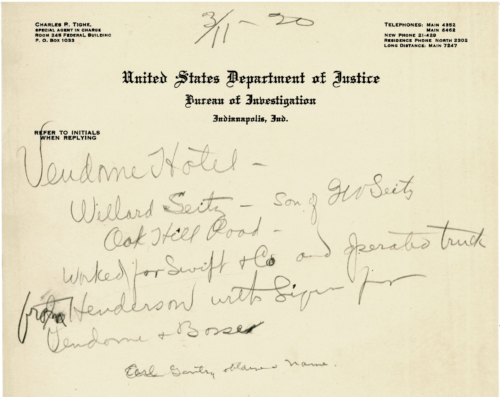 3/11-20
CHARLES P. TIGHE,
SPECIAL AGENT IN CHARGE
ROOM 248 FEDERAL BUILDING
P. O. BOX 1053
TELEPHONES: MAIN 4952
MAIN 6462
NEW PHONE 21-429
RESIDENCE PHONE NORTH 2302
LONG DISTANCE: MAIN 7247
United States Department of Justice
Bureau of Investigation
Indianapolis, Ind.
REFER TO INITIALS
WHEN REPLYING
Vendome Hotel -
Willard Seitz - Son of GW Seitz
Oak Hill Road -
worked for Swift & Co and operated truck
from Henderson with
Vendome &
Gentry name.